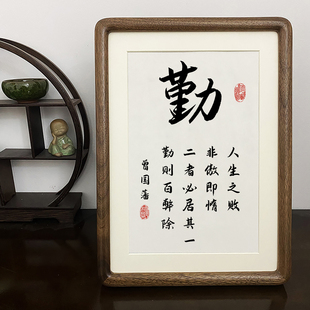 勤
人生之败
非傲即惰
二者必居其一
勤则百弊除
曾国藩